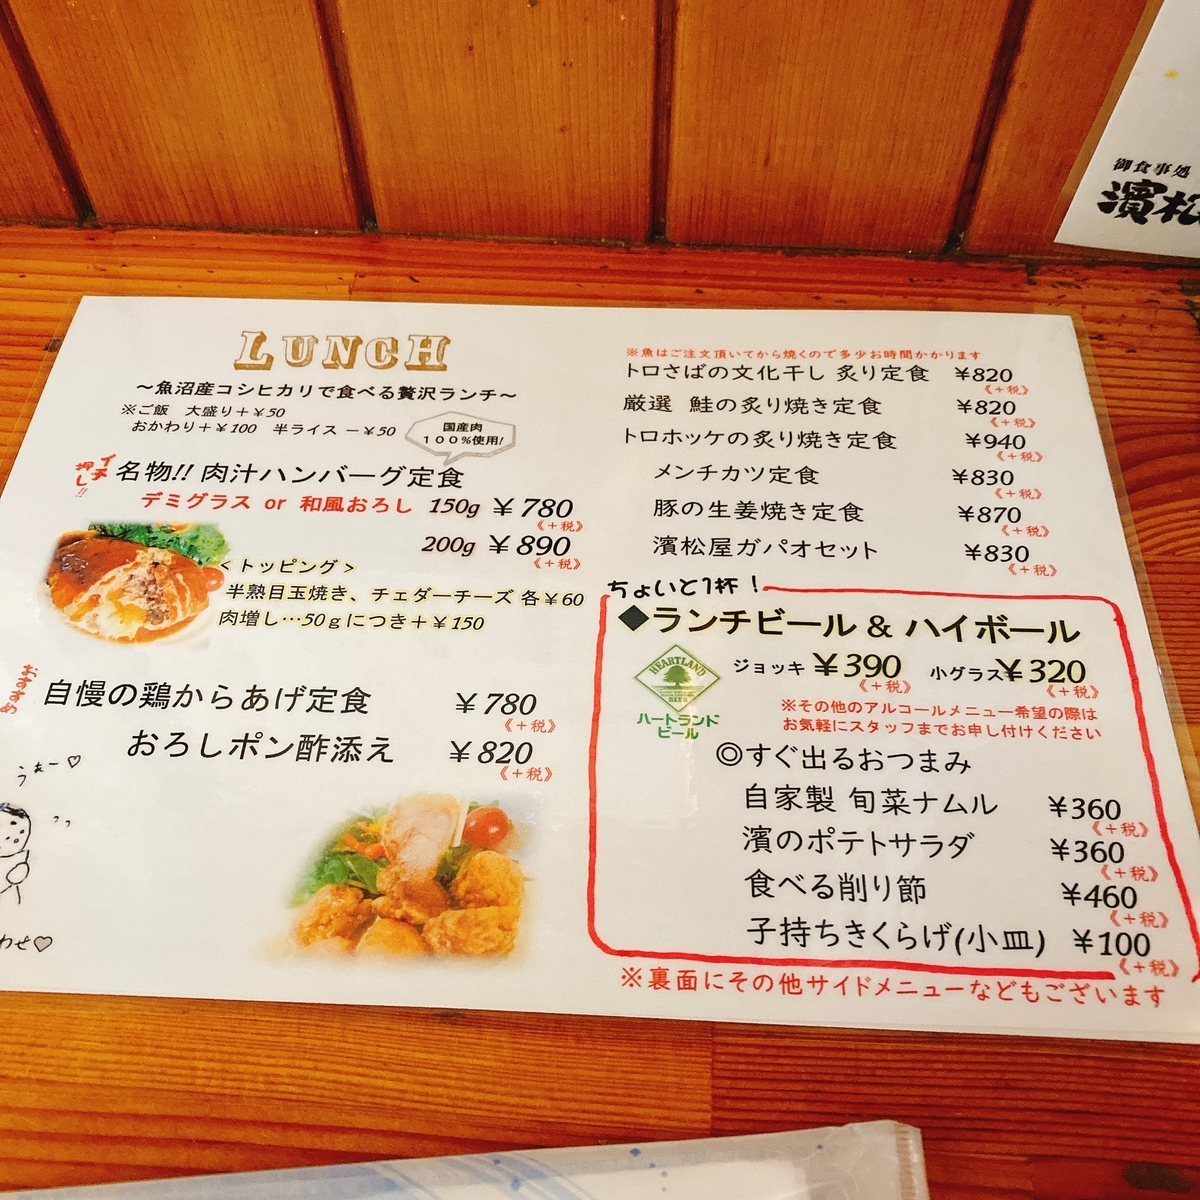 御食事処
濱松
LUNCH
～魚沼産コシヒカリで食べる贅沢ランチ～
※ご飯 大盛り＋￥50
おかわり＋￥100 半ライス －￥50
国産肉
100%使用!
イチ押し!!
名物!! 肉汁ハンバーグ定食
デミグラス or 和風おろし 150g ￥780
《＋税》
200g ￥890
《＋税》
＜トッピング＞
半熟目玉焼き、チェダーチーズ 各￥60
肉増し…50ｇにつき＋￥150
おすすめ
自慢の鶏からあげ定食 ￥780
《＋税》
おろしポン酢添え ￥820
《＋税》
うまー♡
わせ♡
※魚はご注文頂いてから焼くので多少お時間かかります
トロさばの文化干し 炙り定食 ￥820
《＋税》
厳選 鮭の炙り焼き定食 ￥820
《＋税》
トロホッケの炙り焼き定食 ￥940
《＋税》
メンチカツ定食 ￥830
《＋税》
豚の生姜焼き定食 ￥870
《＋税》
濱松屋ガパオセット ￥830
《＋税》
ちょいと1杯！
◆ランチビール & ハイボール
HEARTLAND
BEER
ハートランド
ビール
ジョッキ ￥390 小グラス￥320
《＋税》 《＋税》
※その他のアルコールメニュー希望の際は
お気軽にスタッフまでお申し付けください
◎すぐ出るおつまみ
自家製 旬菜ナムル ￥360
《＋税》
濱のポテトサラダ ￥360
《＋税》
食べる削り節 ￥460
《＋税》
子持ちきくらげ(小皿) ￥100
《＋税》
※裏面にその他サイドメニューなどもございます